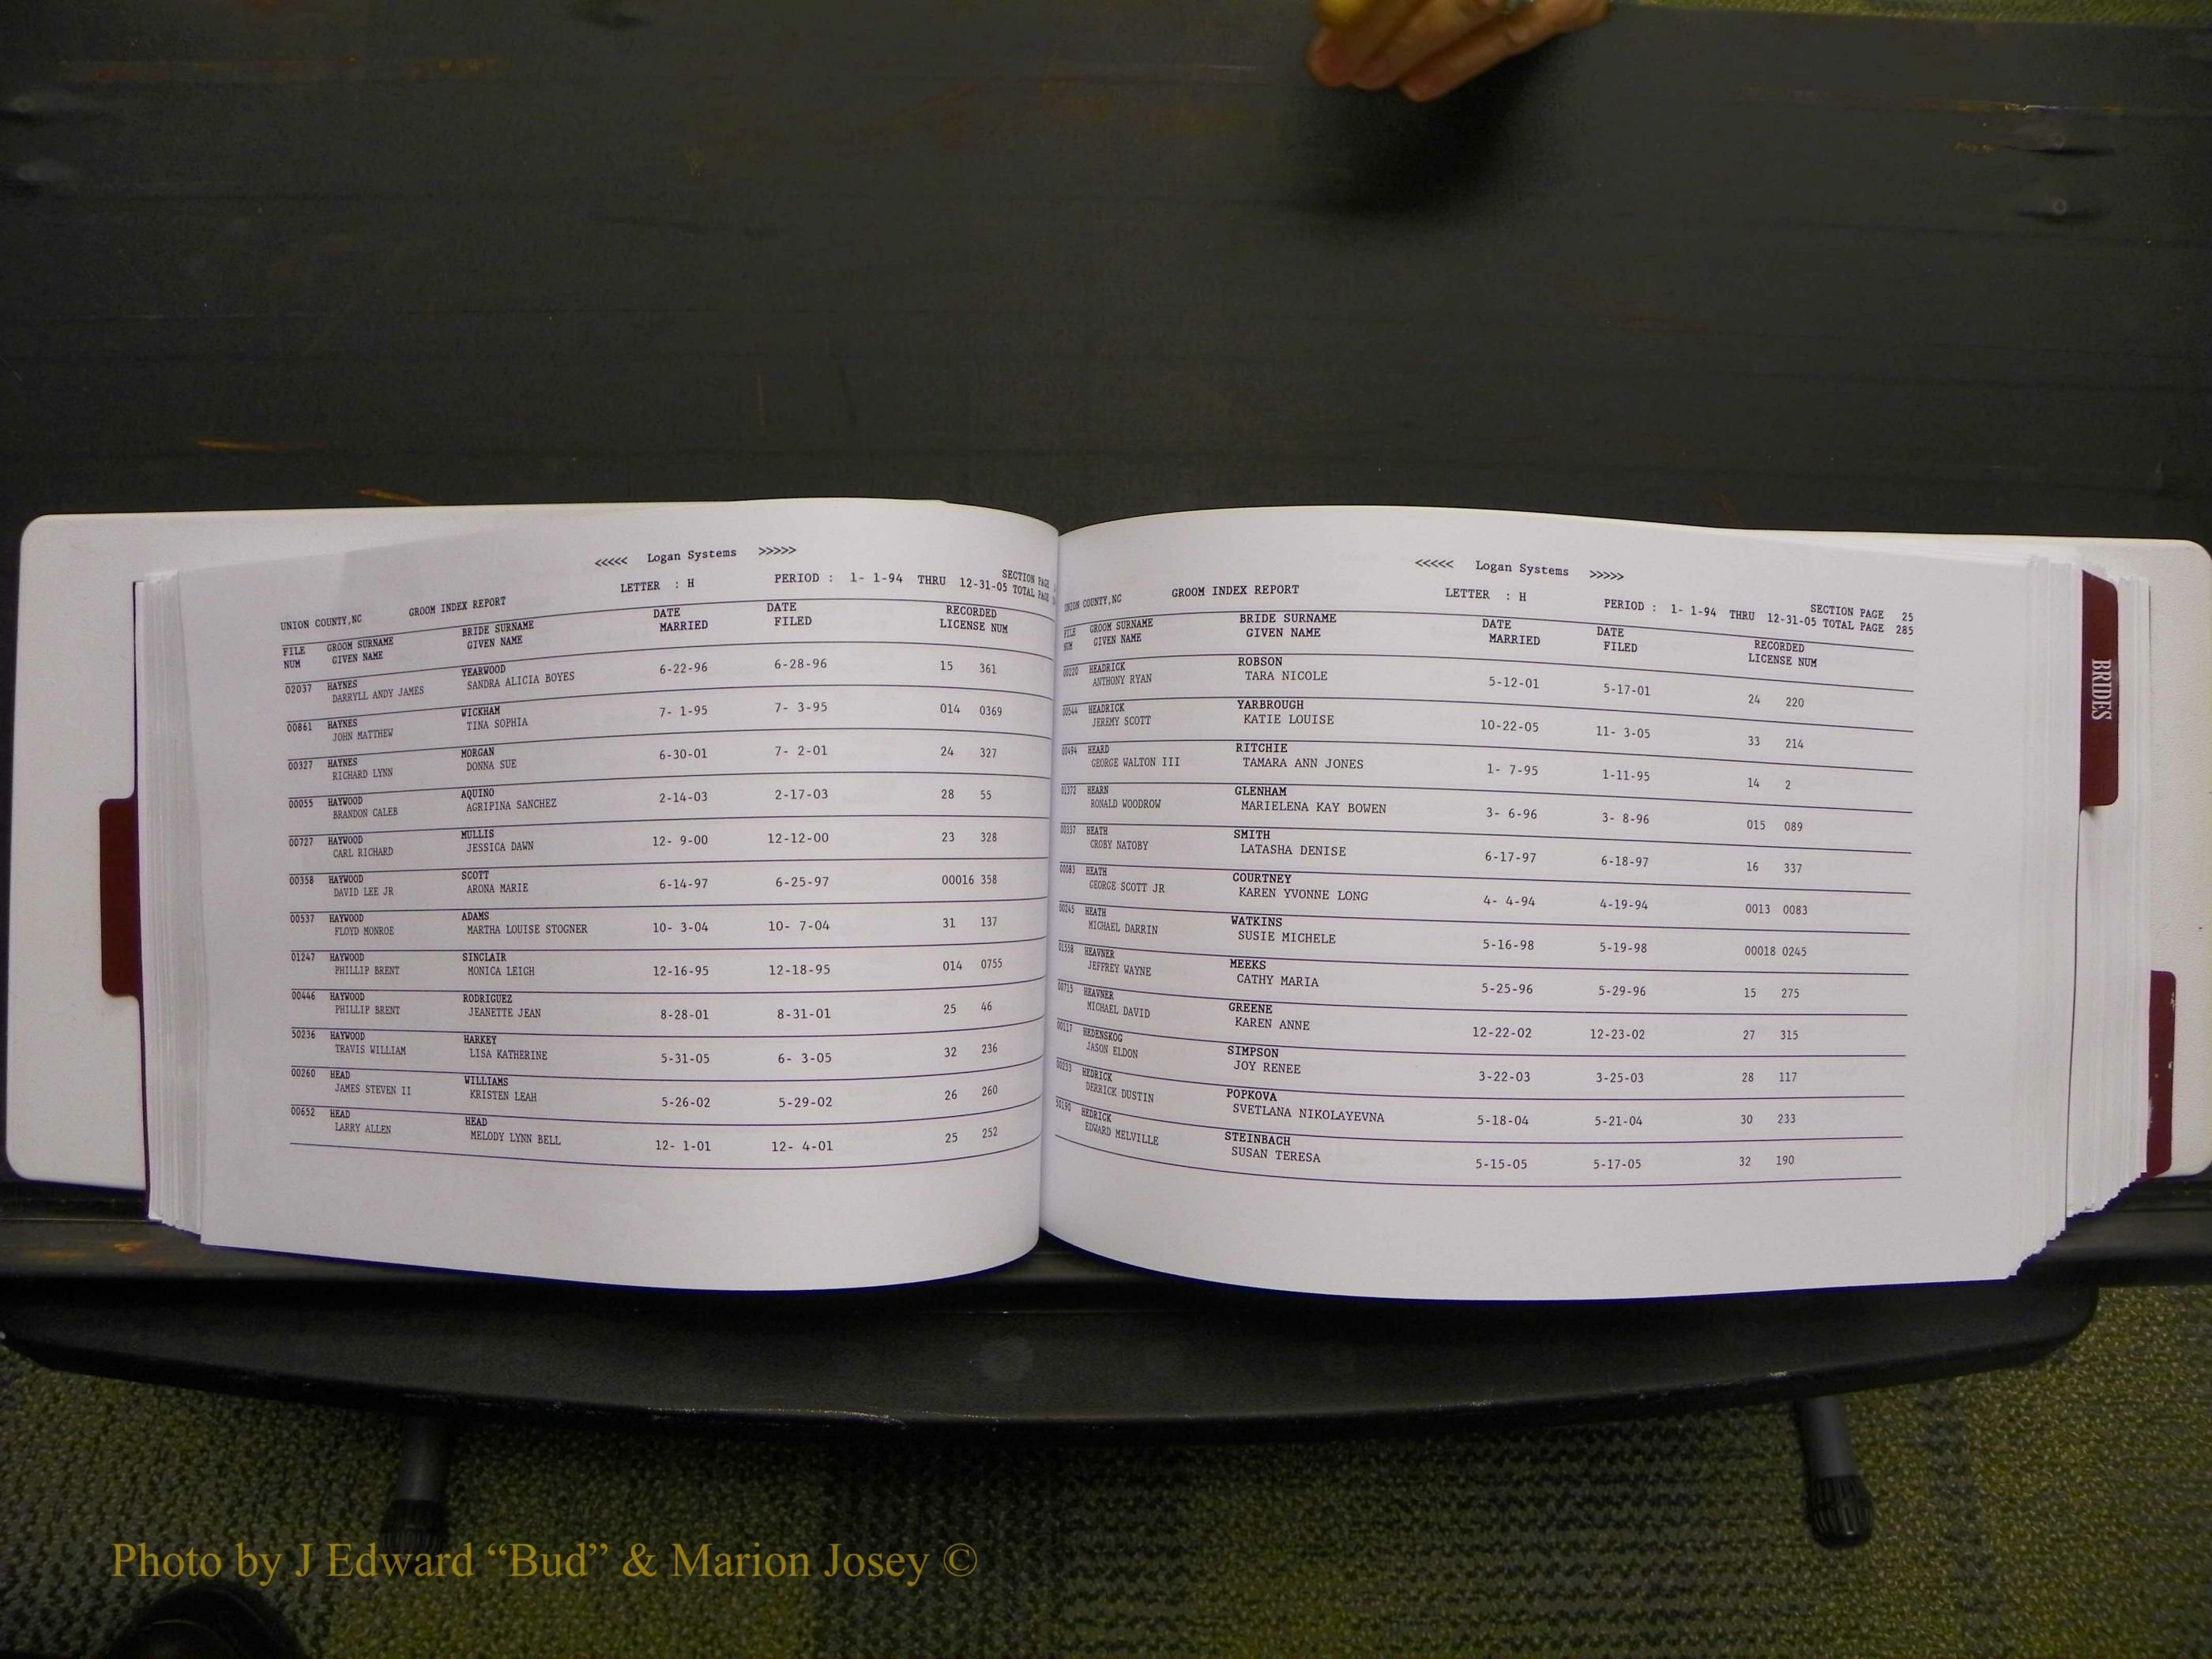 <<<<< Logan Systems >>>>>
UNION COUNTY,NC GROOM INDEX REPORT LETTER : H PERIOD : 1- 1-94 THRU 12-31-05 SECTION PAGE
TOTAL PAGE
FILE GROOM SURNAME BRIDE SURNAME DATE DATE RECORDED
NUM GIVEN NAME GIVEN NAME MARRIED FILED LICENSE NUM
02037 HAYNES YEARWOOD 6-22-96 6-28-96 15 361
DARRYLL ANDY JAMES SANDRA ALICIA BOYES
00861 HAYNES WICKHAM 7- 1-95 7- 3-95 014 0369
JOHN MATTHEW TINA SOPHIA
00327 HAYNES MORGAN 6-30-01 7- 2-01 24 327
RICHARD LYNN DONNA SUE
00055 HAYWOOD AQUINO 2-14-03 2-17-03 28 55
BRANDON CALEB AGRIPINA SANCHEZ
00727 HAYWOOD MULLIS 12- 9-00 12-12-00 23 328
CARL RICHARD JESSICA DAWN
00358 HAYWOOD SCOTT 6-14-97 6-25-97 00016 358
DAVID LEE JR ARONA MARIE
00537 HAYWOOD ADAMS 10- 3-04 10- 7-04 31 137
FLOYD MONROE MARTHA LOUISE STOGNER
01247 HAYWOOD SINCLAIR 12-16-95 12-18-95 014 0755
PHILLIP BRENT MONICA LEIGH
00446 HAYWOOD RODRIGUEZ 8-28-01 8-31-01 25 46
PHILLIP BRENT JEANETTE JEAN
50236 HAYWOOD HARKEY 5-31-05 6- 3-05 32 236
TRAVIS WILLIAM LISA KATHERINE
00260 HEAD WILLIAMS 5-26-02 5-29-02 26 260
JAMES STEVEN II KRISTEN LEAH
00652 HEAD HEAD 12- 1-01 12- 4-01 25 252
LARRY ALLEN MELODY LYNN BELL
<<<<< Logan Systems >>>>>
UNION COUNTY,NC GROOM INDEX REPORT LETTER : H PERIOD : 1- 1-94 THRU 12-31-05 SECTION PAGE 25
TOTAL PAGE 285
FILE GROOM SURNAME BRIDE SURNAME DATE DATE RECORDED
NUM GIVEN NAME GIVEN NAME MARRIED FILED LICENSE NUM
00220 HEADRICK ROBSON 5-12-01 5-17-01 24 220
ANTHONY RYAN TARA NICOLE
00544 HEADRICK YARBROUGH 10-22-05 11- 3-05 33 214
JEREMY SCOTT KATIE LOUISE
00494 HEARD RITCHIE 1- 7-95 1-11-95 14 2
GEORGE WALTON III TAMARA ANN JONES
01372 HEARN GLENHAM 3- 6-96 3- 8-96 015 089
RONALD WOODROW MARIELENA KAY BOWEN
00337 HEATH SMITH 6-17-97 6-18-97 16 337
CROBY NATOBY LATASHA DENISE
00083 HEATH COURTNEY 4- 4-94 4-19-94 0013 0083
GEORGE SCOTT JR KAREN YVONNE LONG
00245 HEATH WATKINS 5-16-98 5-19-98 00018 0245
MICHAEL DARRIN SUSIE MICHELE
01558 HEAVNER MEEKS 5-25-96 5-29-96 15 275
JEFFREY WAYNE CATHY MARIA
00715 HEAVNER GREENE 12-22-02 12-23-02 27 315
MICHAEL DAVID KAREN ANNE
00117 HEDENSKOG SIMPSON 3-22-03 3-25-03 28 117
JASON ELDON JOY RENEE
00233 HEDRICK POPKOVA 5-18-04 5-21-04 30 233
DERRICK DUSTIN SVETLANA NIKOLAYEVNA
50190 HEDRICK STEINBACH 5-15-05 5-17-05 32 190
EDWARD MELVILLE SUSAN TERESA
BRIDES
Photo by J Edward “Bud” & Marion Josey ©